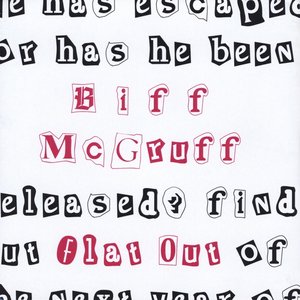 e has escaped
or has he been
Biff
McGruff
eleased? find
ut flat Out of
he next year of